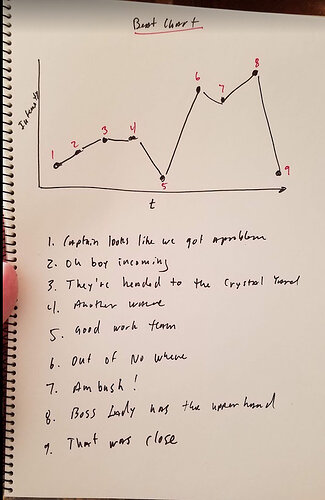 Beat Chart
Intensity
1
2
3
4
5
6
7
8
9
t
1. Captain looks like we got a problem
2. Oh boy incoming
3. They're headed to the Crystal Yard
4. Another wave
5. Good work team
6. Out of No where
7. Ambush!
8. Boss Lady has the upper hand
9. That was close